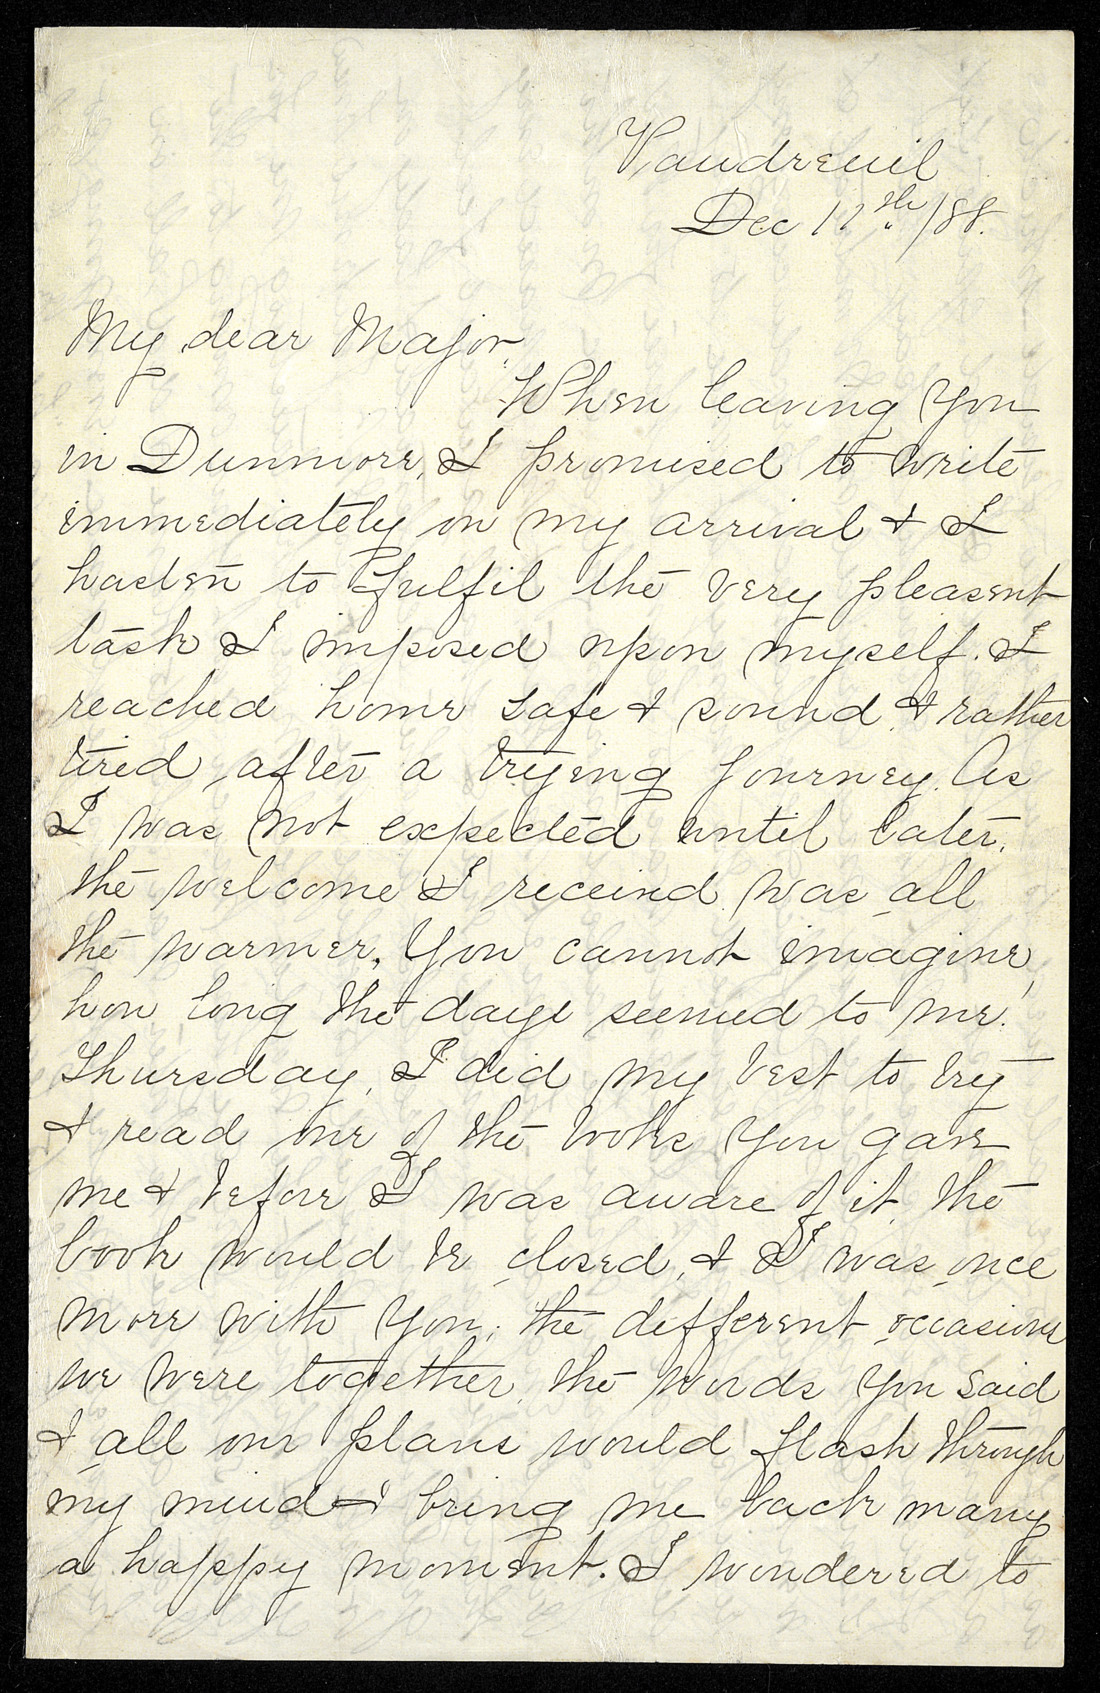 Vaudreuil
Dec 12th/88.
My dear Major,
When leaving you
in Dunmore, I promised to write
immediately on my arrival & I
hasten to fulfil the very pleasent
task I imposed upon myself. I
reached home safe & sound & rather
tired after a trying journey. As
I was not expected until later,
the welcome I received was all
the warmer. You cannot imagine,
how long the days seemed to me!
Thursday, I did my best to try
& read one of the books you gave
me & before I was aware of it the
book would be closed, & I was once
more with you; the different occasions
we were together, the words you said
& all our plans would flash through
my mind & bring me back many
a happy moment. I wondered to